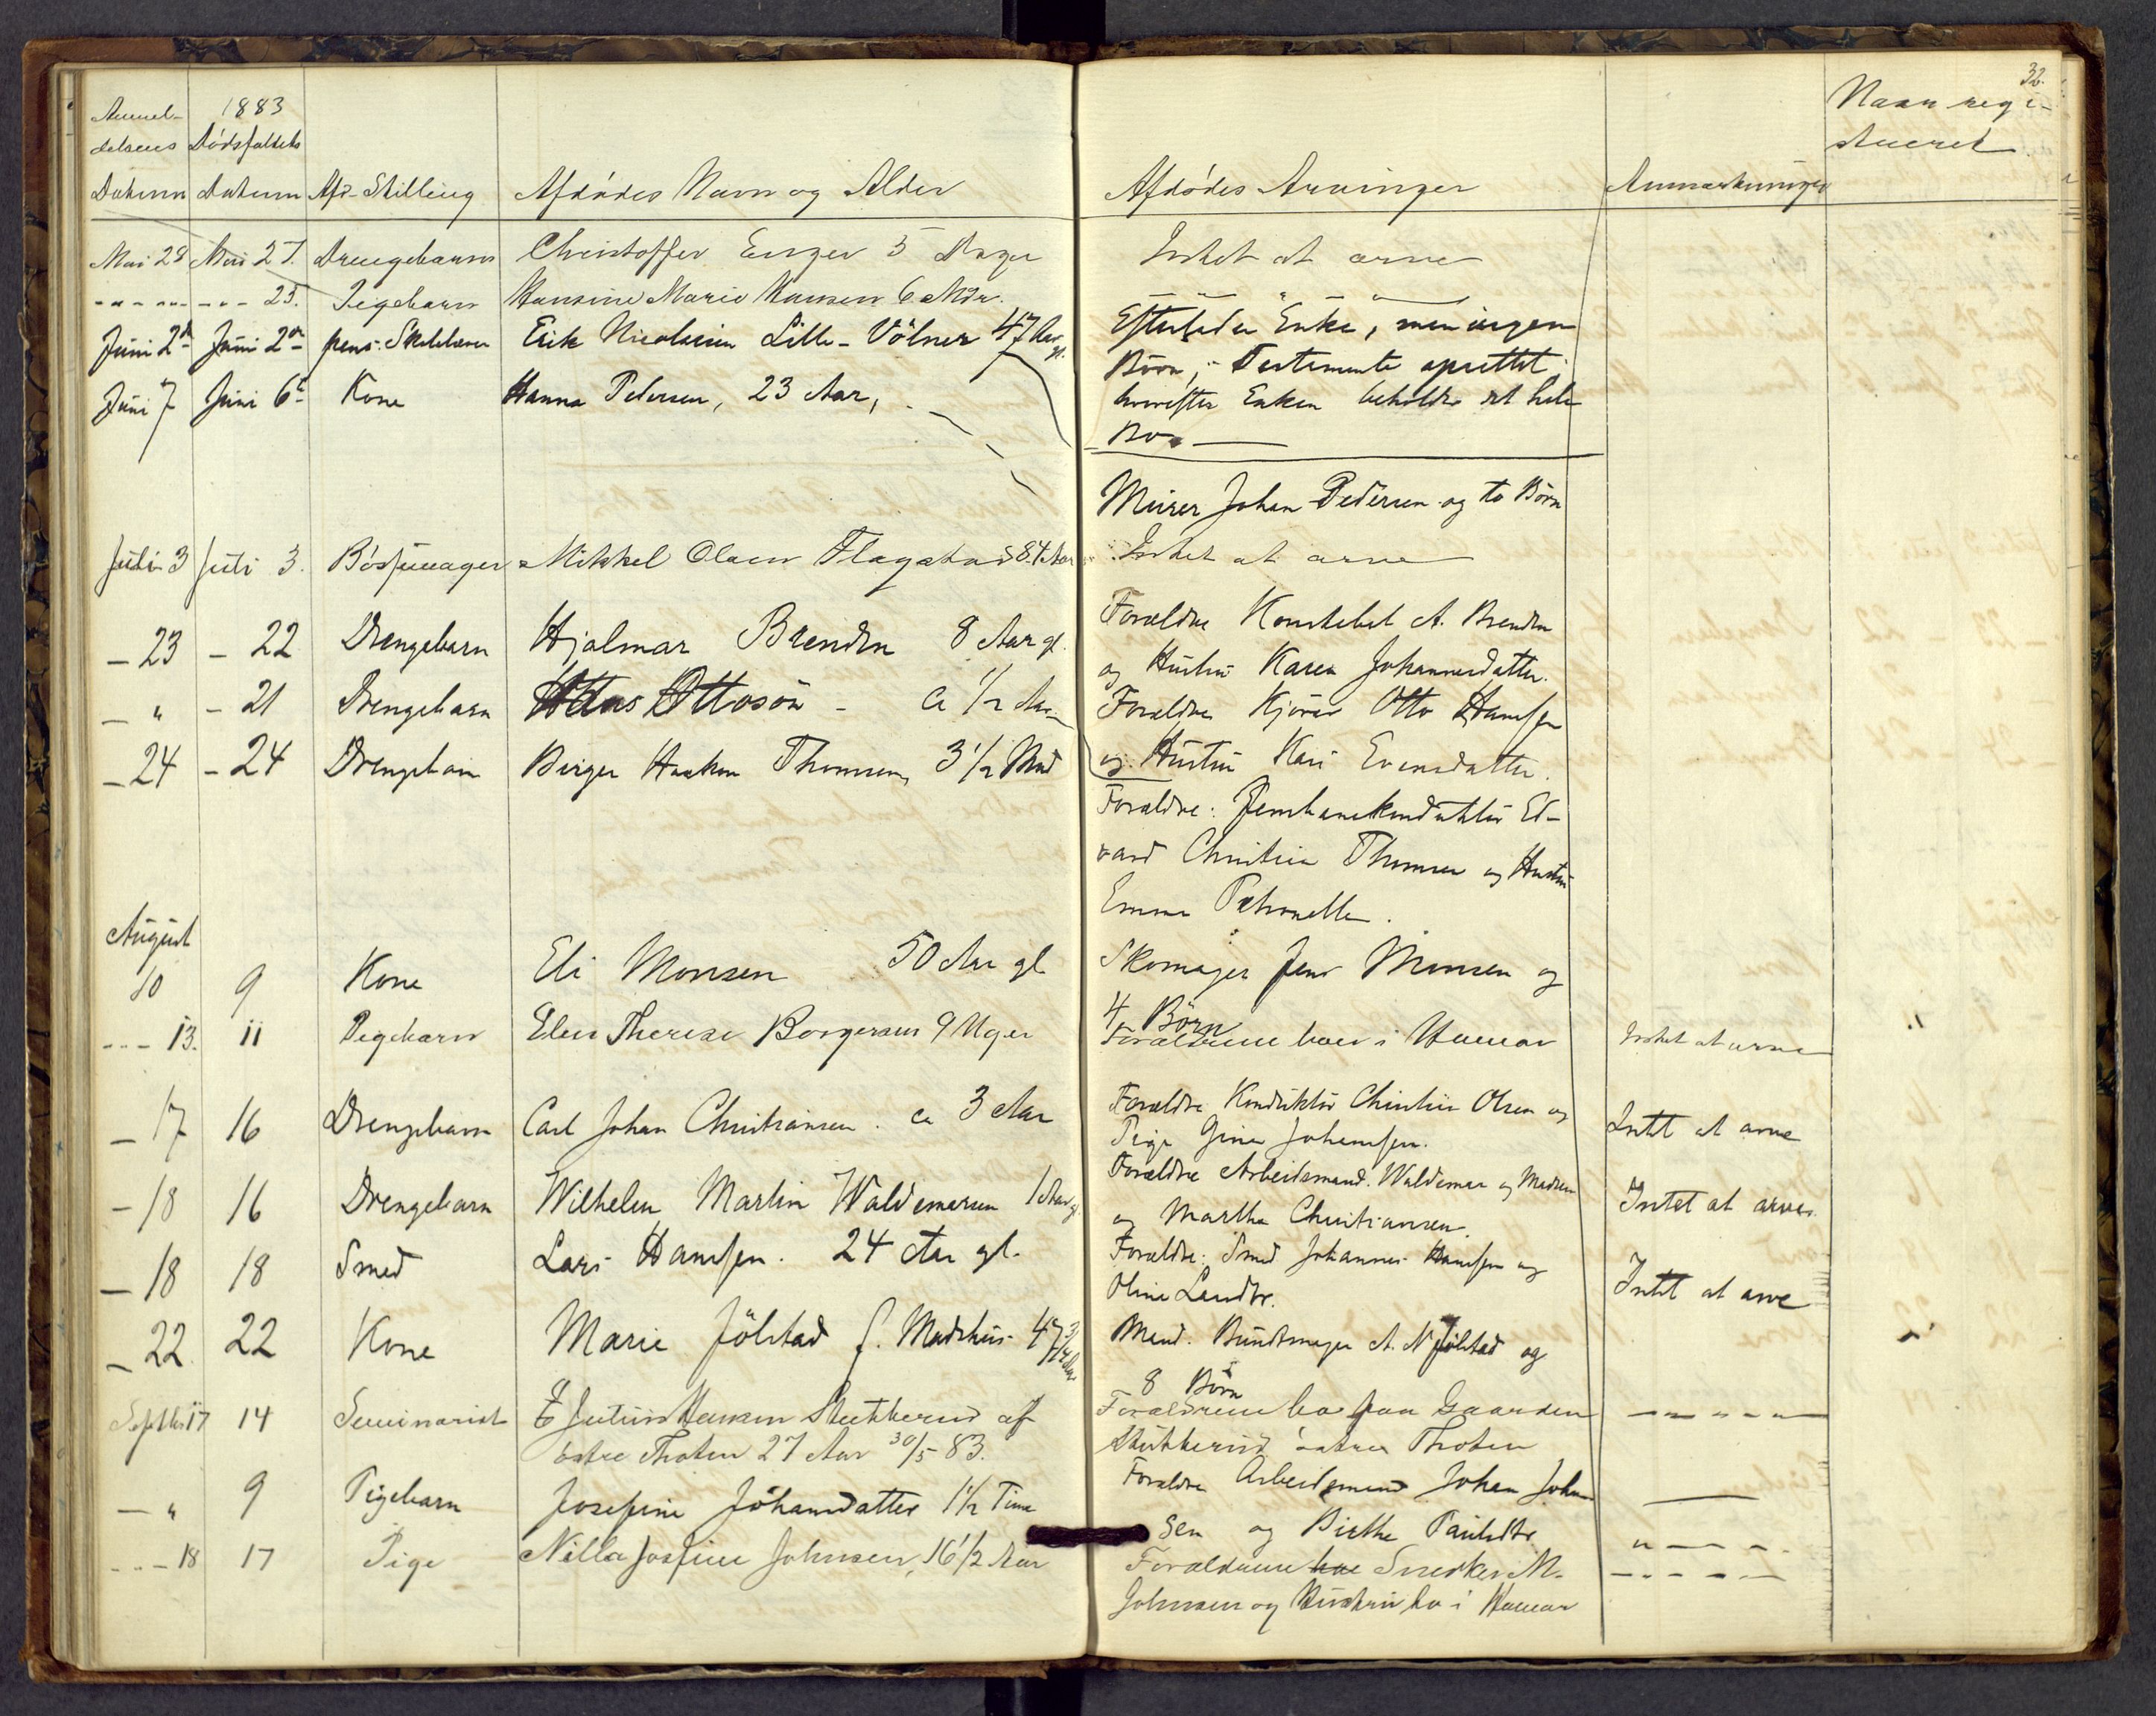 32.
Anmel-
delsens
Datum
1883
Dødsfaldets
Datum
Afd. Stilling
Afdødes Navn og Alder
Afdødes Arvinger
Anmærkninger
Naar regi-
streret
Mai 28 Mai 27. Drengebarn Christoffer Enger 5 Dage Intet at arve
" 25. Pigebarn Hansine Marie Hansen 6 Mdr. " " "
Juni 2den Juni 2den pens. Skolelærer Erik Nicolaisen Lille-Völner 47 Aar gl. Efterlader Enke, men ingen
Börn; Testamente oprettet,
hvorefter Enken beholder det hele
Bo.
Juni 7 Juni 6te Kone Hanna Petersen, 23 Aar,
Murer Johan Pedersen og to Börn
Juli 3 Juli 3. Bøsjmager Mikkel Olsen Flagstad 84 Aar Intet at arve
- 23 - 22 Drengebarn Hjalmar Brenden 8 Aar gl. Forældre Konstabel A. Brenden
og Hustru Karen Johannesdatter.
- " - 21 Drengebarn Hans Ottosön - ca 1/2 Aar Forældre Kjörer Otto Hansen
og Hustru Kari Evensdatter.
- 24 - 24 Drengebarn Birger Haakon Thomsen, 3 1/2 Mnd
Forældre: Jernbanekonduktör Ed-
vard Christian Thomsen og Hustru
Emma Petronelle.
August
10 9 Kone Eli Monsen 50 Aar gl Skomager Jens Monsen og
4 Börn
- 13. 11 Pigebarn Elen Therese Borgersen 9 Uger Forældrene boer i Hamar Intet at arve
- 17 16 Drengebarn Carl Johan Christiansen. ca 3 Aar Forældre Konduktör Christian Olsen og
Pige Gina Johansen. Intet at arve
- 18 16 Drengebarn Wilhelm Martin Waldemarsen 1 Aar gl. Forældre Arbeidsmand Waldemar og Madsen
og Martha Christiansen. Intet at arve.
- 18 18 Smed Lars Hansen. 24 Aar gl. Forældre: Smed Johannes Hansen og
Oline Larsdtr. Intet at arve
- 22. 22 Kone Marie Jölstad f. Madshus 47 3/4 Aar Mand. Bundtmager A. N Jölstad og
8 Börn
Septbr 17 14 Seminarist E Julius Hansen Stutterud af Forældrene bo paa Gaarden - " - " -
østre Thoten 27 Aar 30/5 83. Stutterud østre Thoten
- " 9 Pigebarn Josefine Johansdatter 1 1/2 Time Forældre Arbeidsmand Johan Johan
sen og Birthe Paulsdtr. " - - -
- 18 17 Pige Nilla Josfine Johnsen, 16 1/2 Aar Forældrene boe Snedker M. - - - -
Johnsen og Hustru bo i Hamar